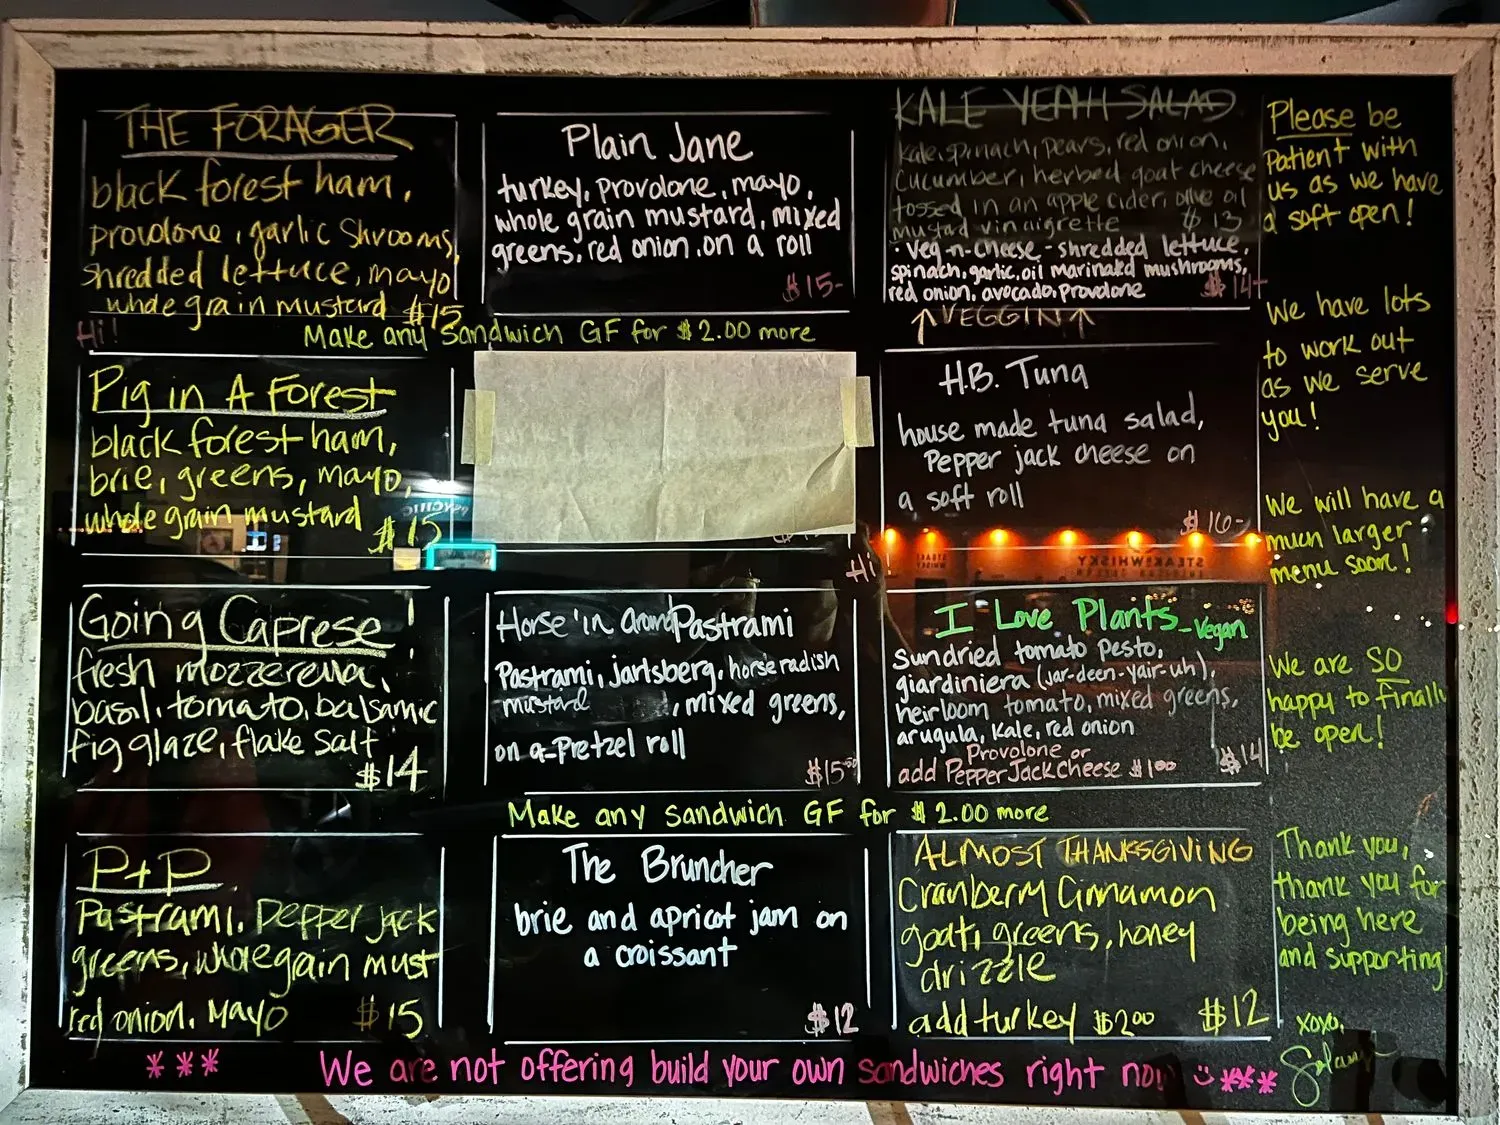 THE FORAGER
black forest ham,
provolone, garlic shrooms,
shredded lettuce, mayo
whole grain mustard $15
Hi!
Plain Jane
turkey, provolone, mayo,
whole grain mustard, mixed
greens, red onion, on a roll
$15-
KALE YEAH SALAD
kale, spinach, pears, red onion,
cucumber, herbed goat cheese
tossed in an apple cider, olive oil
mustad vinaigrette $13
• veg-n-cheese - shredded lettuce,
spinach, garlic, oil marinated mushrooms,
red onion, avocado, provolone $14+
↑ VEGGIN ↑
Make any Sandwich GF for $2.00 more
Pig in A Forest
black forest ham,
brie, greens, mayo,
whole grain mustard
$15
H.B. Tuna
house made tuna salad,
Pepper jack cheese on
a soft roll
$16-
Hi!
PSYCHIC
STEAK WHISKY
STEAK&WHISKY
Going Caprese!
fresh mozzerella,
basil, tomato, balsamic
fig glaze, flake salt
$14
Horse'in around Pastrami
Pastrami, jarlsberg, horseradish
mustard, mixed greens,
on a pretzel roll
$15.00
I Love Plants - Vegan
sundried tomato pesto,
giardiniera (jar-deen-yair-uh),
heirloom tomato, mixed greens,
arugula, kale, red onion
Provolone or
add Pepper Jack Cheese $1.00 $14
Make any sandwich GF for $2.00 more
P+P
Pastrami, Pepper jack
greens, whole grain must
red onion, mayo $15
The Bruncher
brie and apricot jam on
a croissant
$12
ALMOST THANKSGIVING
Cranberry Cinnamon
goat, greens, honey
drizzle
add turkey $2.00 $12
*** We are not offering build your own sandwiches right now ☺***
Please be
patient with
us as we have
a soft open!
We have lots
to work out
as we serve
you!
We will have a
much larger
menu soon!
We are SO
happy to finally
be open!
Thank you,
thank you for
being here
and supporting
xoxo,